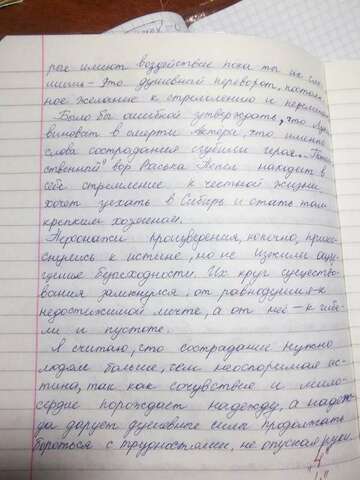 рые имеют воздействие пока ты их слы
шишь - это душевный переворот, постоян
ное желание к стремлению и переменам
Было бы ошибкой утверждать, что Лука
виноват в смерти Актёра, что именно
слова сострадания сгубили героя. "Потом
ственный" вор Васька Пепел находит в
себе стремление к честной жизни
хочет уехать в Сибирь и стать там
крепким хозяином.
Персонажи произведения, конечно, прикос
нулись к истине, но не изжили ощу
щение безысходности. Их круг существо
вания замкнулся: от равнодушия-к
недостижимой мечте, а от неё - к гибе
ли и пустоте.
Я считаю, что сострадание нужно
людям больше, чем неоспоримая ис
тина, так как сочувствие и мило
сердие порождает надежду, а надеж
да дарует душевные силы продолжать
бороться с трудностями, не опуская руки.